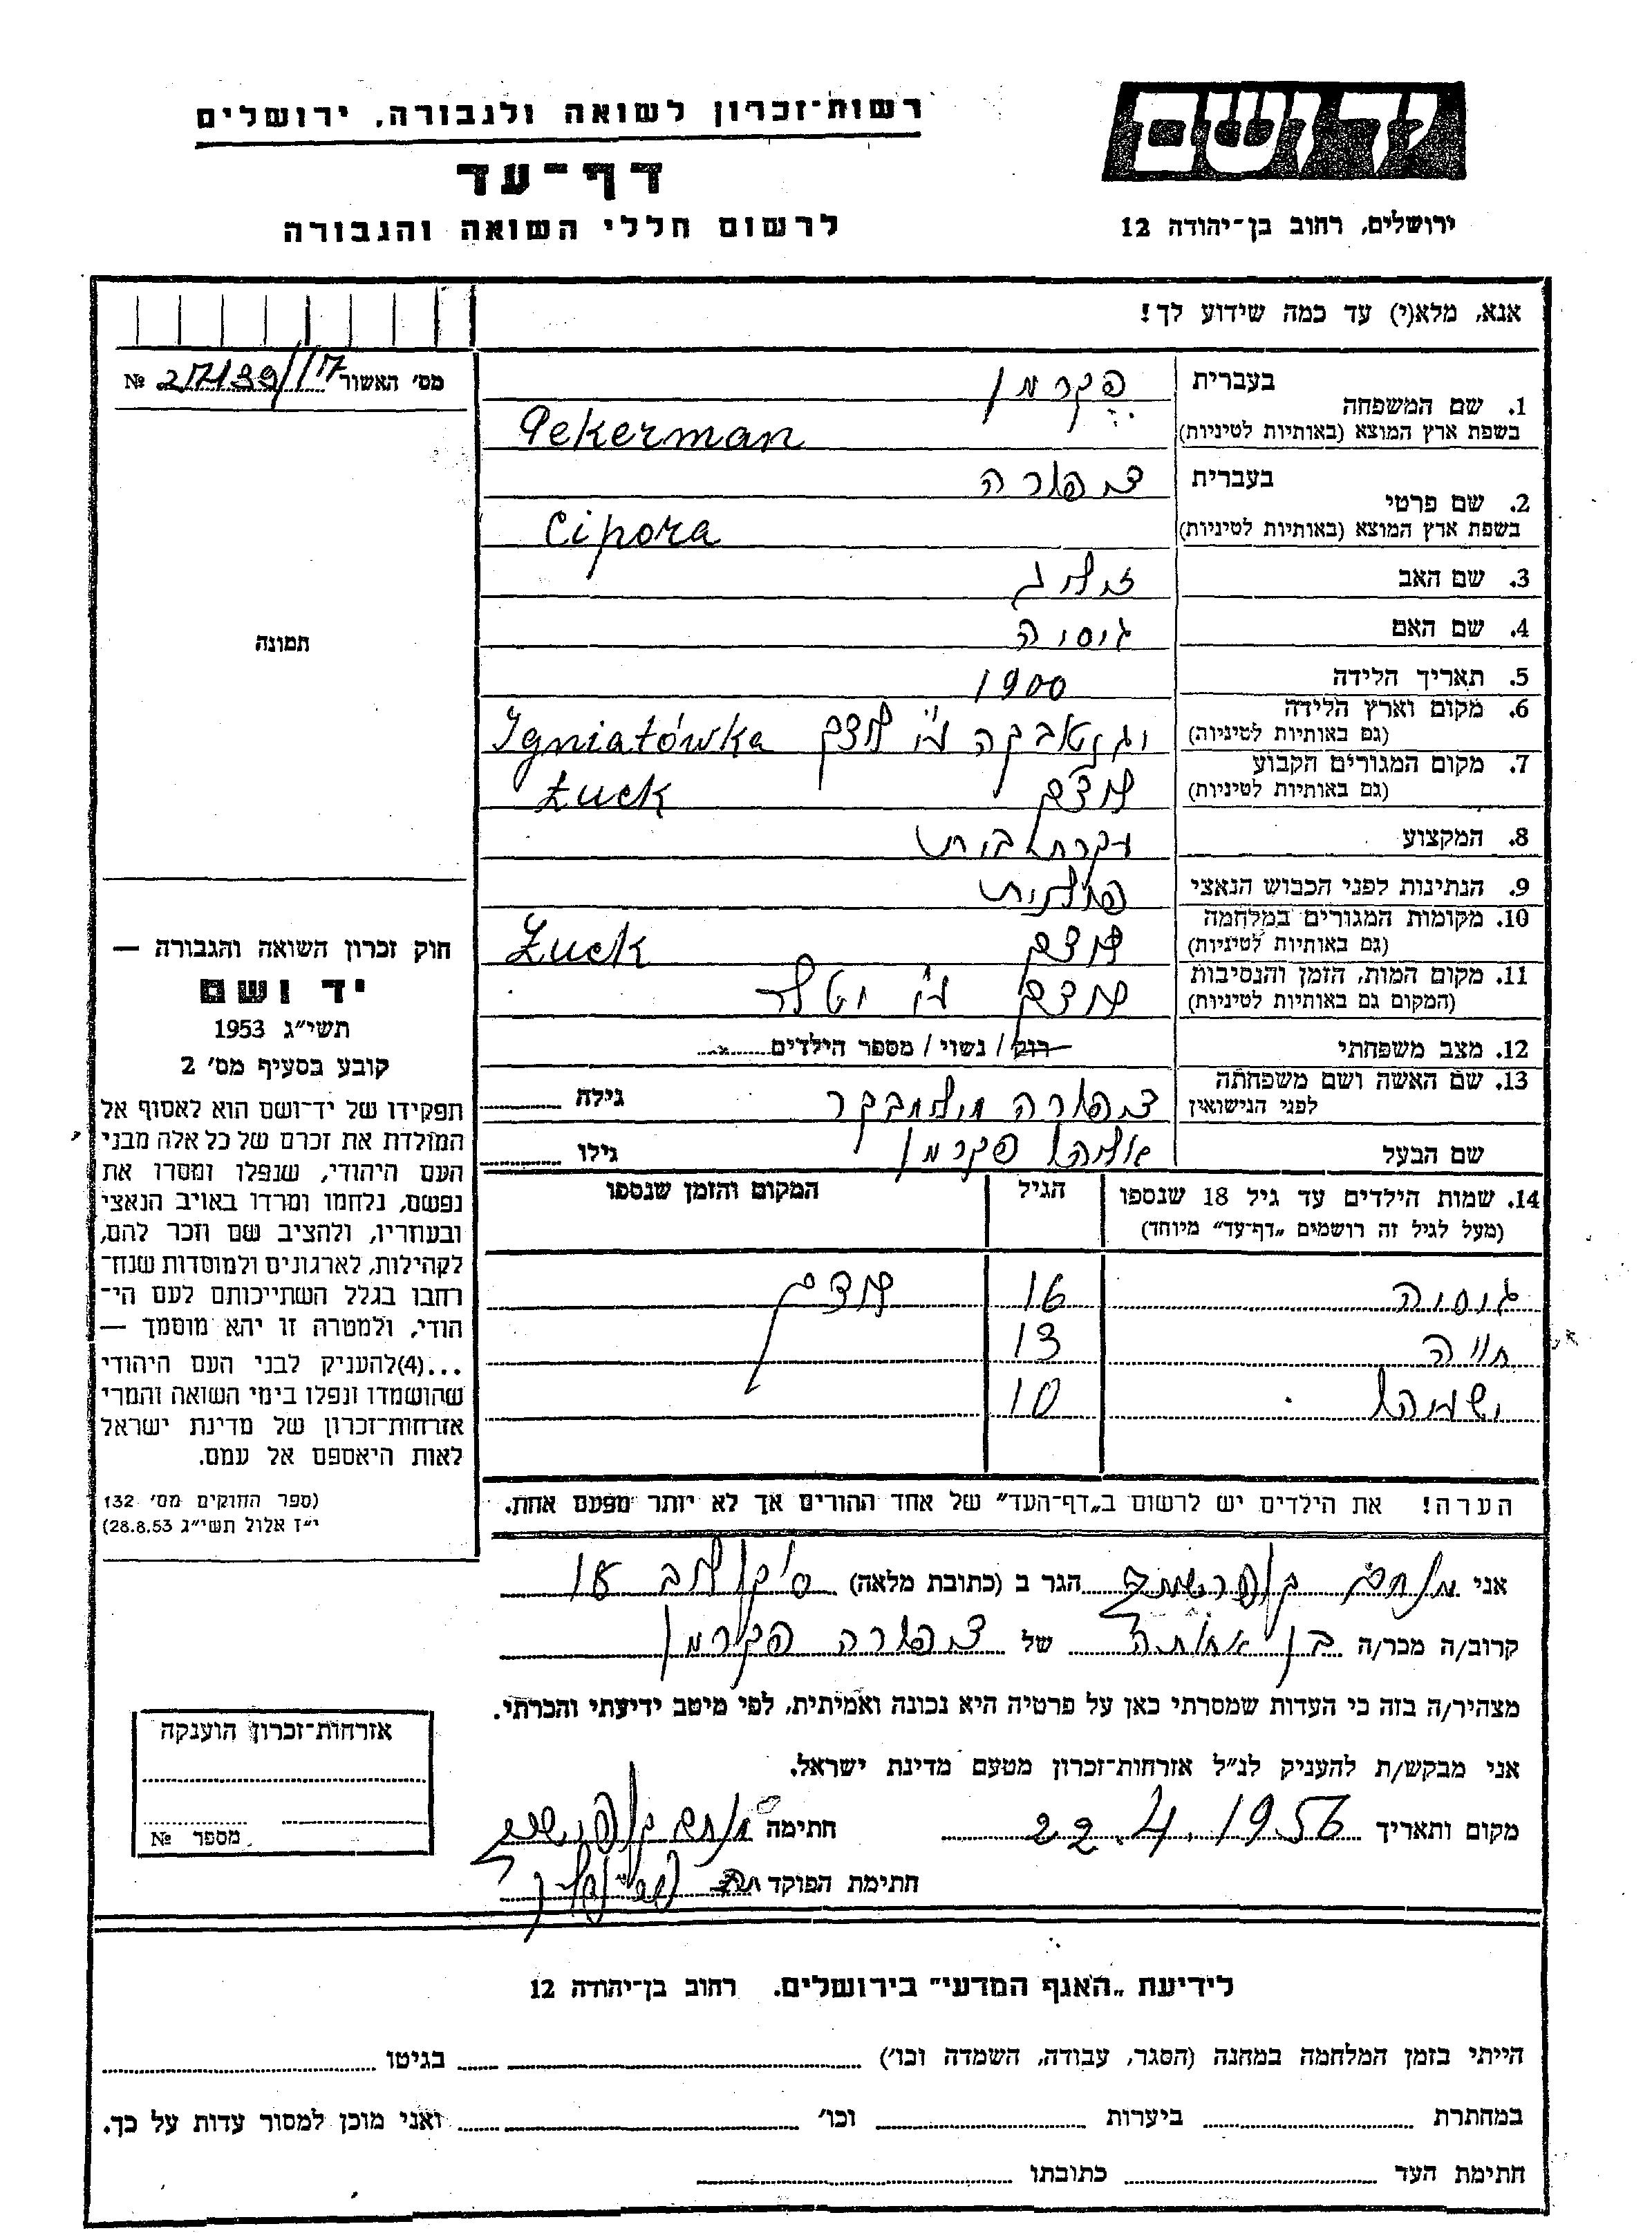 רשות־זכרון לשואה ולגבורה, ירושלים
דף־עד
לרשום חללי השואה והגבורה
ידושם
ירושלים, רחוב בן־יהודה 12
אנא, מלא(י) עד כמה שידוע לך!
מס׳ האשור № 27139/17
1. שם המשפחה בעברית פקרמן
בשפת ארץ המוצא (באותיות לטיניות) Pekerman
2. שם פרטי בעברית צפורה
בשפת ארץ המוצא (באותיות לטיניות) Cipora
3. שם האב זליג
4. שם האם גוסיה
5. תאריך הלידה 1900
6. מקום וארץ הלידה
(גם באותיות לטיניות) ע״י לוצק Igniatówka
7. מקום המגורים הקבוע
(גם באותיות לטיניות) לוצק Łuck
8. המקצוע עקרת בית
9. הנתינות לפני הכבוש הנאצי פולנית
10. מקומות המגורים במלחמה
(גם באותיות לטיניות) לוצק Łuck
11. מקום המות, הזמן והנסיבות
(המקום גם באותיות לטיניות) לוצק ע״י
12. מצב משפחתי רוק / נשוי / מספר הילדים
13. שם האשה ושם משפחתה
לפני הנישואין צפורה גילה
שם הבעל פקרמן גילו
14. שמות הילדים עד גיל 18 שנספו הגיל המקום והזמן שנספו
(מעל לגיל זה רושמים „דף־עד״ מיוחד)
גוסיה 16 לוצק
חייה 13
10
הערה! את הילדים יש לרשום ב„דף־העד״ של אחד ההורים אך לא יותר מפעם אחת.
תמונה
חוק זכרון השואה והגבורה —
יד ושם
תשי״ג 1953
קובע בסעיף מס׳ 2
תפקידו של יד־ושם הוא לאסוף אל
המולדת את זכרם של כל אלה מבני
העם היהודי, שנפלו ומסרו את
נפשם, נלחמו ומרדו באויב הנאצי
ובעוזריו, ולהציב שם וזכר להם,
לקהילות, לארגונים ולמוסדות שנח־
רחבו בגלל השתייכותם לעם הי־
הודי, ולמטרה זו יהא מוסמך —
...(4)להעניק לבני העם היהודי
שהושמדו ונפלו בימי השואה והמרי
אזרחות־זכרון של מדינת ישראל
לאות היאספם אל עמם.
(ספר החוקים מס׳ 132
י״ז אלול תשי״ג 28.8.53)
אני הגר ב (כתובת מלאה)
קרוב/ה מכר/ה בן אחותה של צפורה פקרמן
מצהיר/ה בזה כי העדות שמסרתי כאן על פרטיה היא נכונה ואמיתית, לפי מיטב ידיעתי והכרתי.
אני מבקש/ת להעניק לנ״ל אזרחות־זכרון מטעם מדינת ישראל.
מקום ותאריך 22.4.1956 חתימה
חתימת הפוקד
אזרחות־זכרון הוענקה
מספר №
לידיעת „האגף המדעי״ בירושלים. רחוב בן־יהודה 12
הייתי בזמן המלחמה במחנה (הסגר, עבודה, השמדה וכו׳) בגיטו
במחתרת ביערות וכו׳ ואני מוכן למסור עדות על כך.
חתימת העד כתובתו